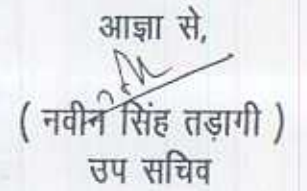 आज्ञा से,
( नवीन सिंह तड़ागी )
उप सचिव